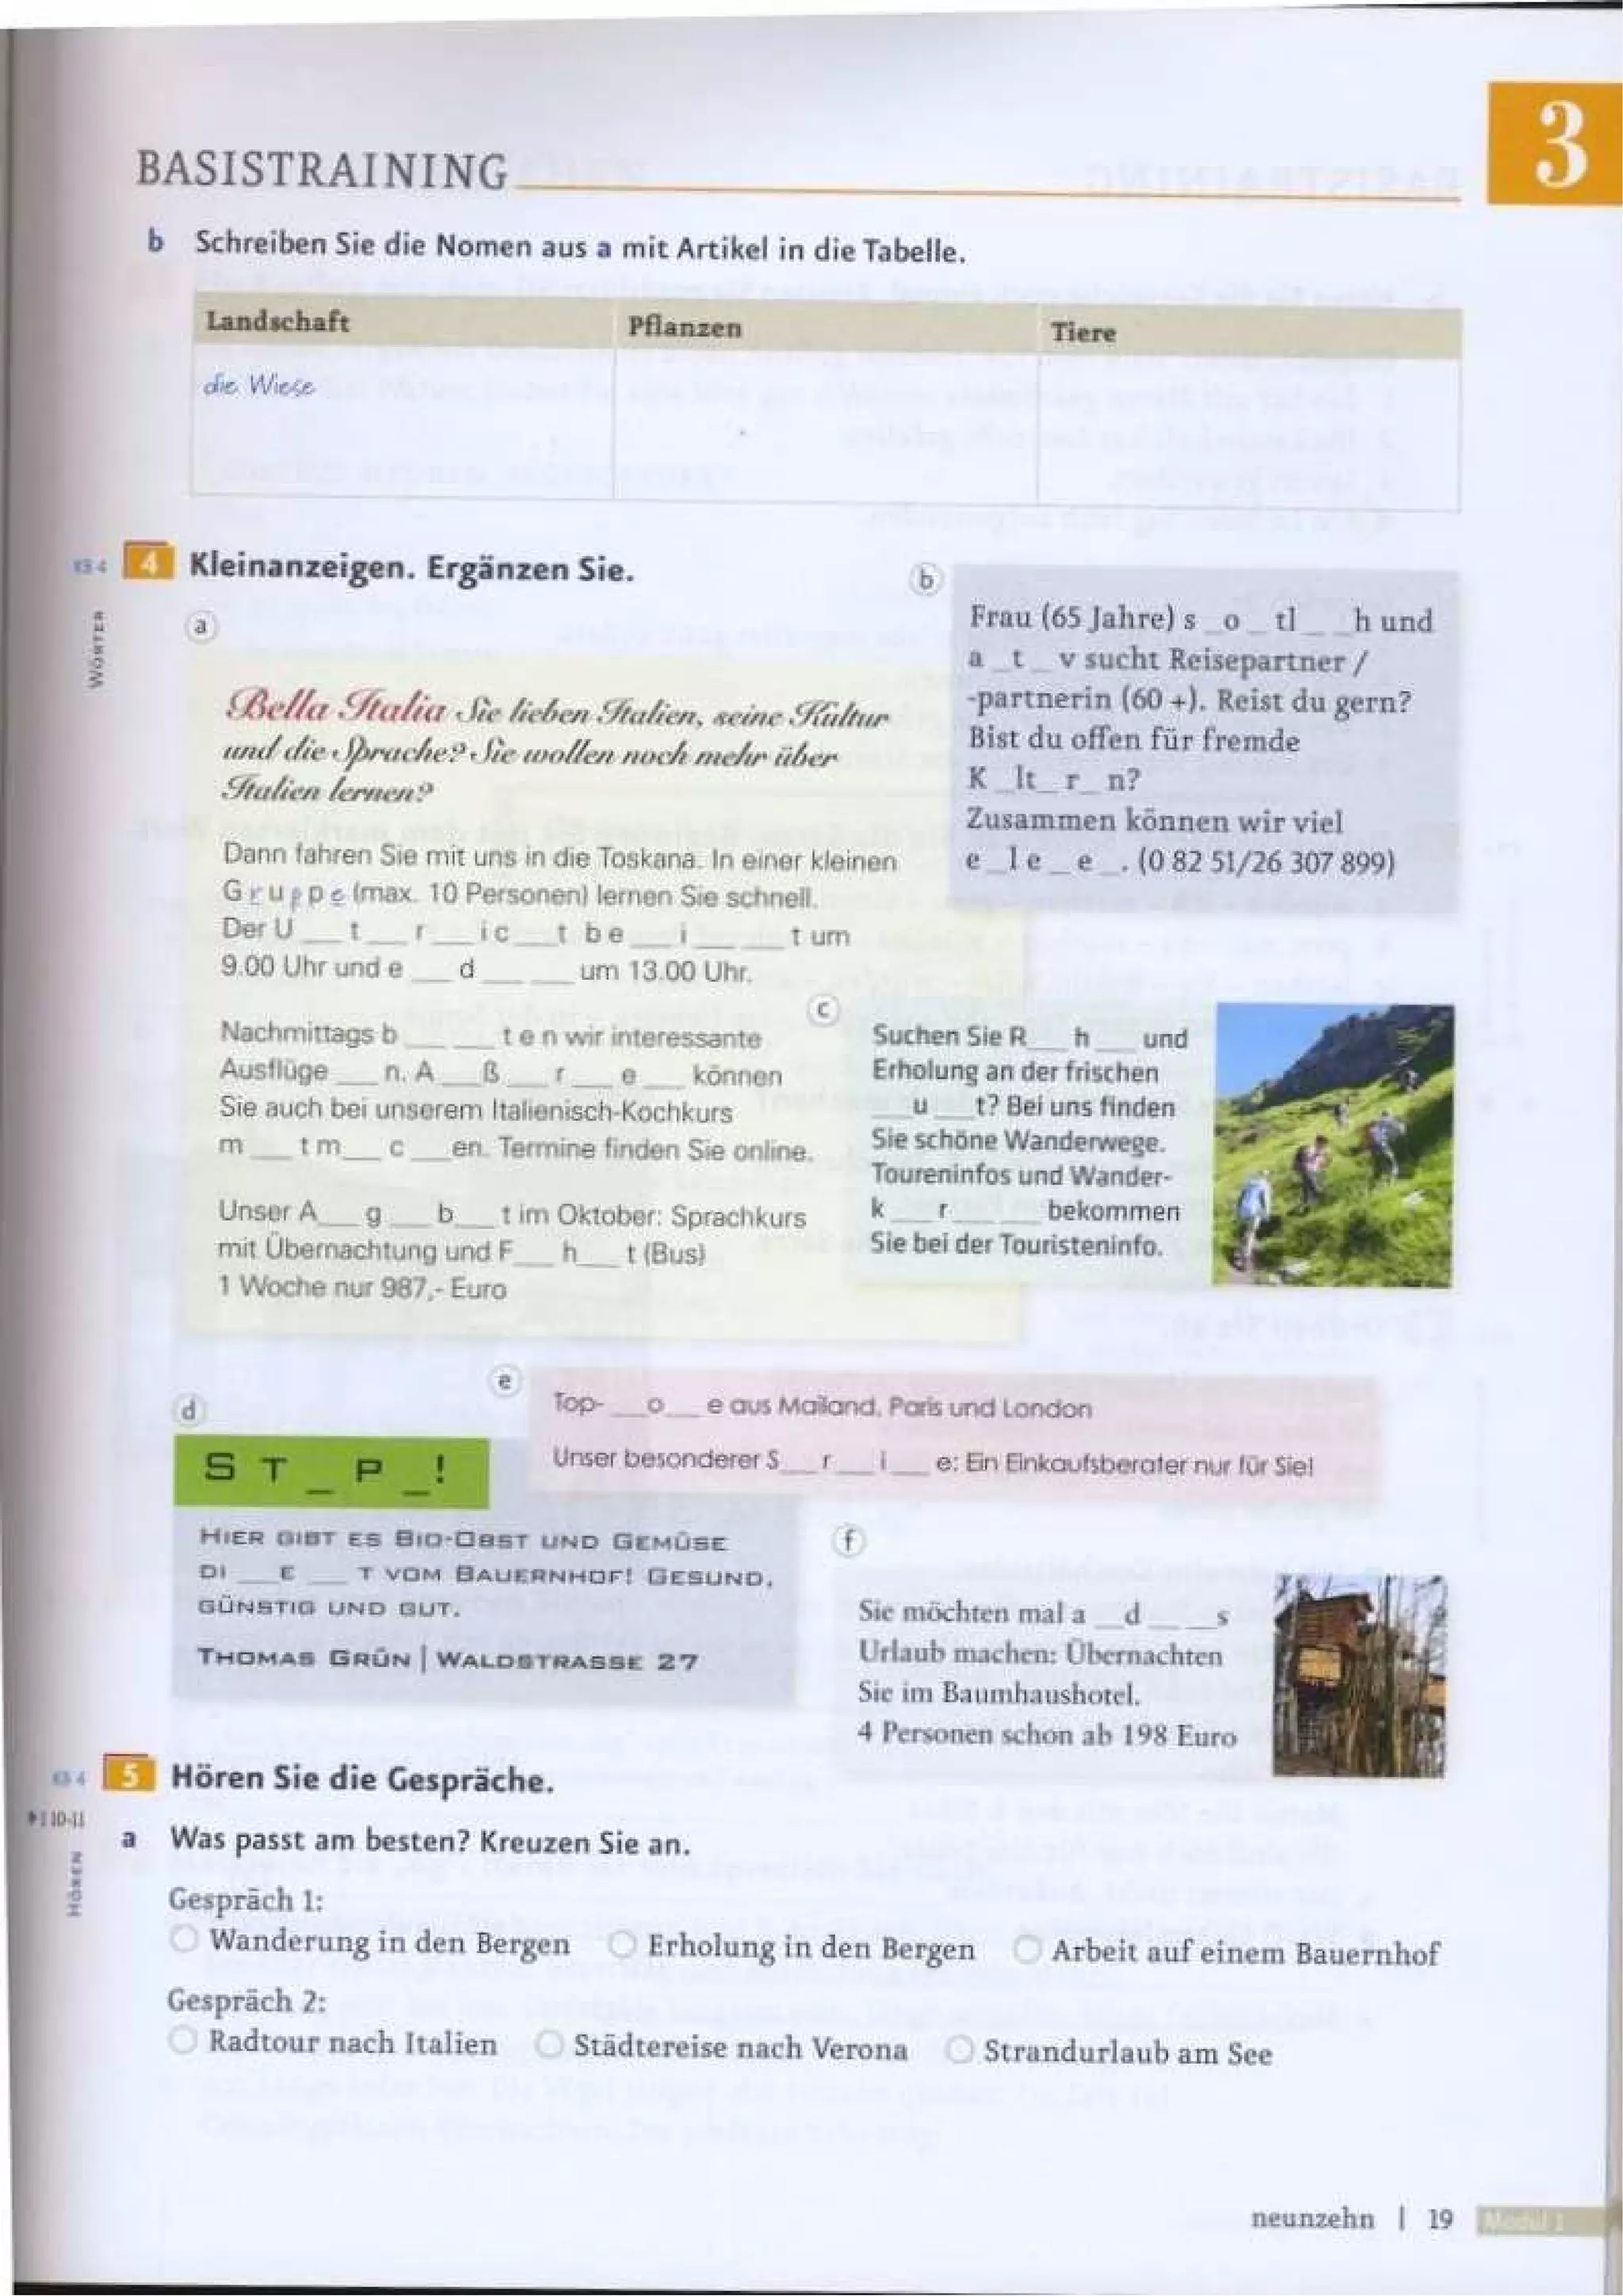 3
BASISTRAINING
b Schreiben Sie die Nomen aus a mit Artikel in die Tabelle.
Landschaft Pflanzen Tiere
die Wiese
KB 4 4 Kleinanzeigen. Ergänzen Sie.
WÖRTER
a
Bella Italia Sie lieben Italien, seine Kultur
und die Sprache? Sie wollen noch mehr über
Italien lernen?
Dann fahren Sie mit uns in die Toskana. In einer kleinen
G r u p p e (max. 10 Personen) lernen Sie schnell.
Der U __ t __ r __ i c __ t b e __ i __ __ t um
9.00 Uhr und e __ d __ __ um 13.00 Uhr.
Nachmittags b __ __ t e n wir interessante
Ausflüge __ n. A __ ß __ r __ e __ können
Sie auch bei unserem Italienisch-Kochkurs
m __ t m __ c __ en. Termine finden Sie online.
Unser A __ g __ b __ t im Oktober: Sprachkurs
mit Übernachtung und F __ h __ t (Bus)
1 Woche nur 987,- Euro
b
Frau (65 Jahre) s _ o _ tl _ _ h und
a _ t _ v sucht Reisepartner /
-partnerin (60 +). Reist du gern?
Bist du offen für fremde
K _ lt _ r _ n?
Zusammen können wir viel
e _ l e _ e _ . (0 82 51/26 307 899)
c
Suchen Sie R __ h __ und
Erholung an der frischen
__ u __ t? Bei uns finden
Sie schöne Wanderwege.
Toureninfos und Wander-
k __ r __ __ bekommen
Sie bei der Touristeninfo.
d
S T _ P _ !
HIER GIBT ES BIO-OBST UND GEMÜSE
DI __ E __ T VOM BAUERNHOF! GESUND,
GÜNSTIG UND GUT.
THOMAS GRÜN | WALDSTRASSE 27
e
Top- __ o __ e aus Mailand, Paris und London
Unser besonderer S __ r __ i __ e: Ein Einkaufsberater nur für Sie!
f
Sie möchten mal a __ d __ __ s
Urlaub machen: Übernachten
Sie im Baumhaushotel.
4 Personen schon ab 198 Euro
KB 4 5 Hören Sie die Gespräche.
▶ 1 10-11
HÖREN
a Was passt am besten? Kreuzen Sie an.
Gespräch 1:
○ Wanderung in den Bergen ○ Erholung in den Bergen ○ Arbeit auf einem Bauernhof
Gespräch 2:
○ Radtour nach Italien ○ Städtereise nach Verona ○ Strandurlaub am See
neunzehn | 19 Modul 1